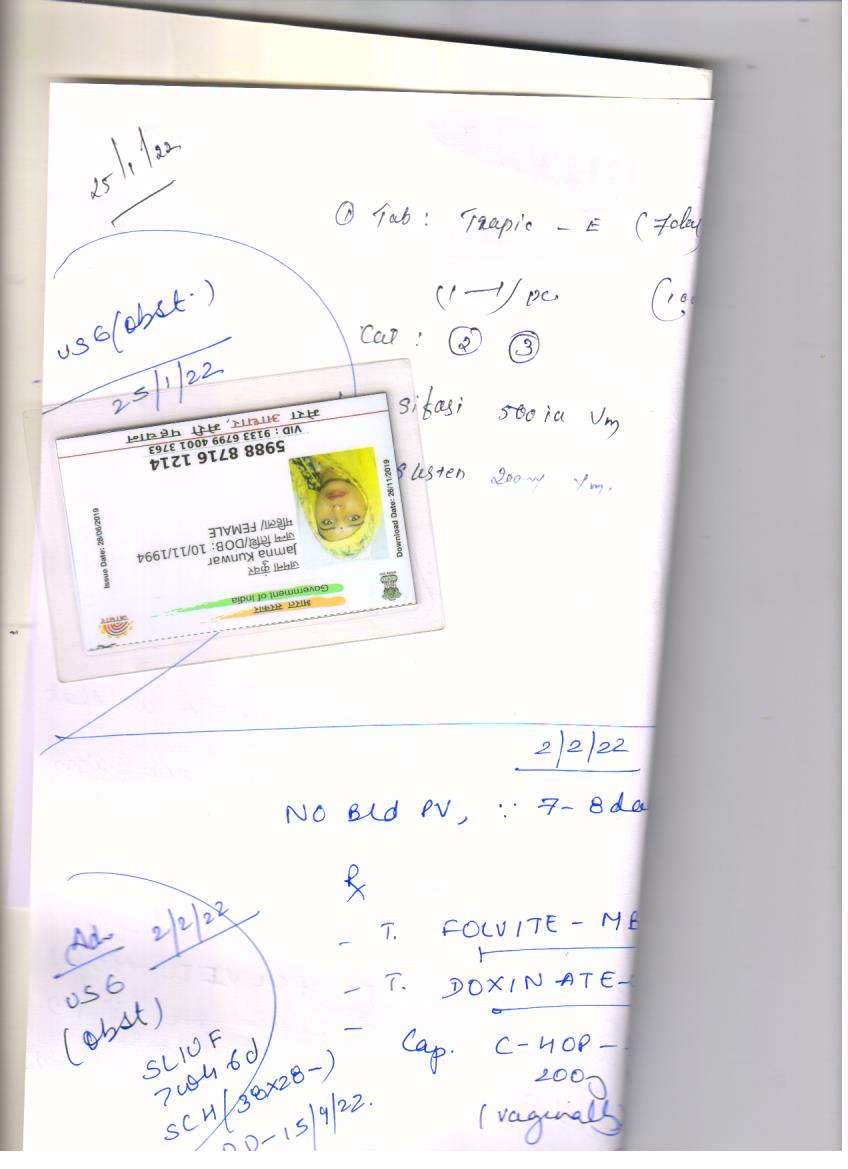 25/1/22
① Tab: Trapic - E (7day
(1—1) pc.
USG (obst.)
25/1/22
Cat: ② ③
sifasi 500 iu I/m
susten 200 I/m.
भारत सरकार
Government of India
जमना कुंवर
Jamna Kunwar
जन्म तिथि/DOB: 10/11/1994
महिला/ FEMALE
Issue Date: 28/06/2019
Download Date: 26/11/2019
5988 8716 1214
VID : 9133 6799 4001 3763
मेरा आधार, मेरी पहचान
2/2/22
NO Bld PV, ∵ 7-8 da
Rx
- T. FOLVITE - MB
- T. DOXINATE-
- Cap. C-HOP -
200
(vaginally)
Adv 2/2/22
USG
(obst)
SLIUF
7wk 6d
SCH (38x28-)
DD-15/9/22.